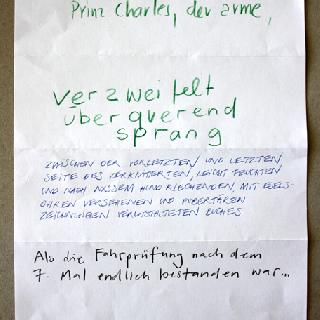 Prinz Charles, der arme,
verzweifelt
überquerend
sprang
ZWISCHEN DER VORLETZTEN UND LETZTEN
SEITE DES ZERKNITTERTEN, LEICHT FEUCHTEN
UND NACH NASSEM HUND RIECHENDEN, MIT ESELS-
OHREN VERSEHENEN UND PUBERTÄREN
ZEICHNUNGEN VERUNSTALTETEN BUCHES
Als die Fahrprüfung nach dem
7. Mal endlich bestanden war...